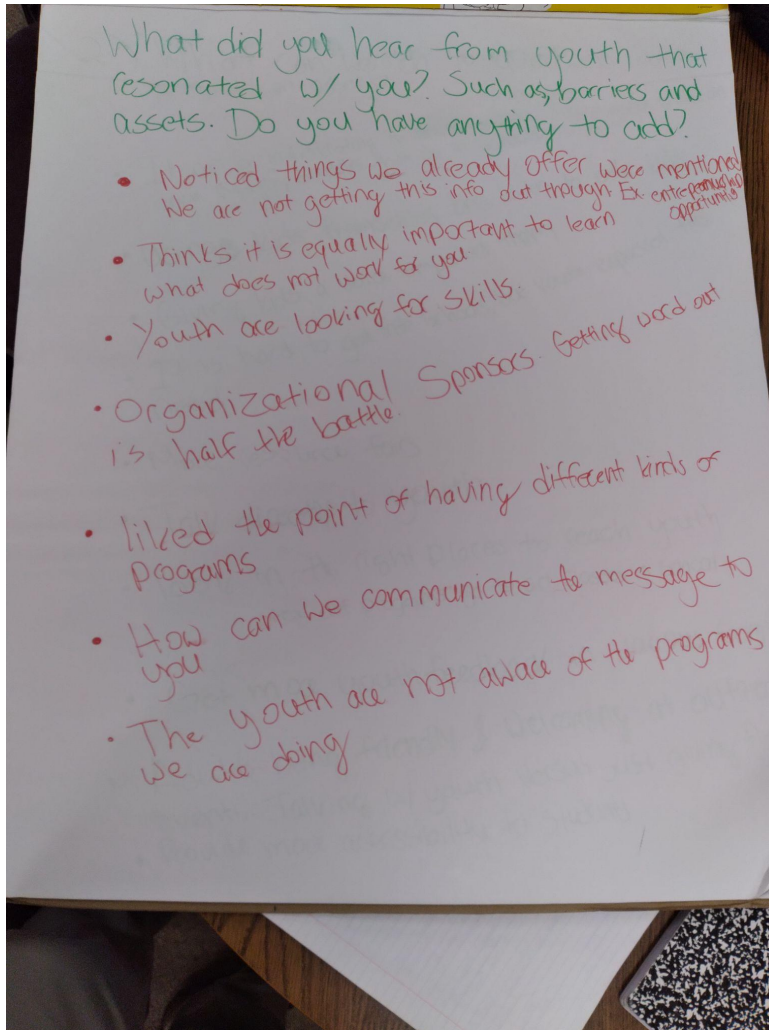 What did you hear from youth that
resonated w/ you? Such as, barriers and
assets. Do you have anything to add?
• Noticed things we already offer were mentioned
We are not getting this info out though. Ex. entrepreneurship
opportunities
• Thinks it is equally important to learn
what does not work for you.
• Youth are looking for skills.
• Organizational Sponsors. Getting word out
is half the battle.
• liked the point of having different kinds of
programs
• How can we communicate the message to
you
• The youth are not aware of the programs
we are doing